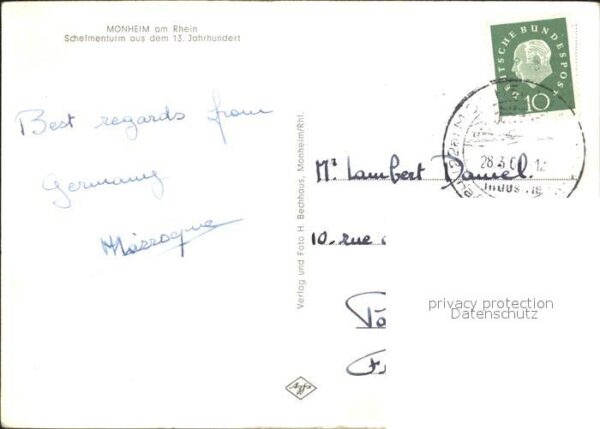 MONHEIM am Rhein
Schelmenturm aus dem 13. Jahrhundert
DEUTSCHE BUNDESPOST
10
Best regards from
Germany
28.3.6
12
Mr Lambert Daniel.
10. rue
Verlag und Foto H. Bechhaus, Monheim/Rhl.
privacy protection
Datenschutz